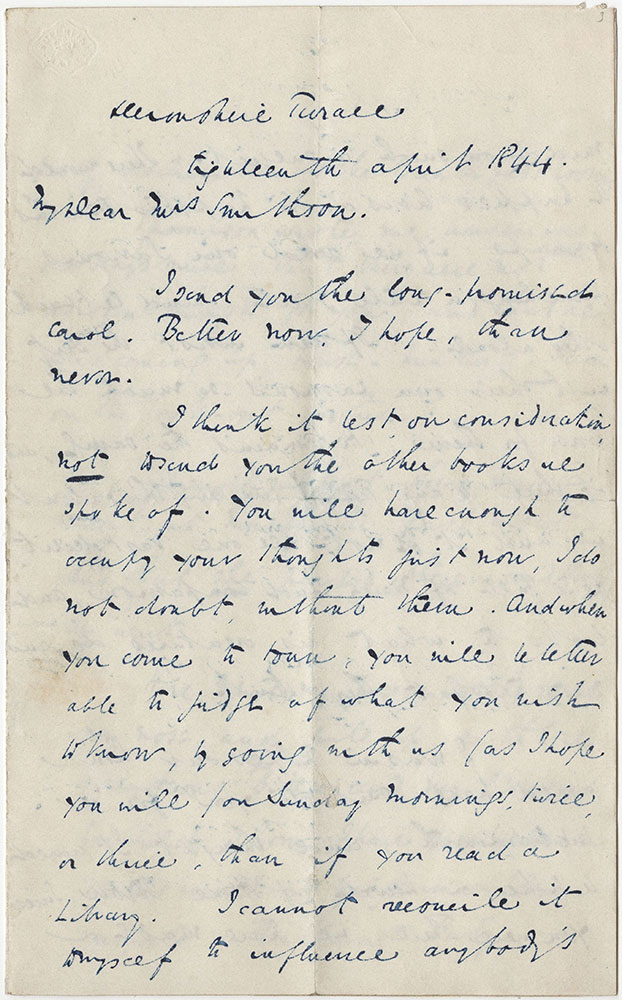 Devonshire Terrace
Eighteenth April 1844.
My dear Mrs Smithson.
I send you the long-promised
Carol. Better now I hope, than
never.
I think it best, on consideration
not to send you the other books we
spoke of. You will have enough to
occupy your thoughts just now, I do
not doubt, without them. And when
you come to town, you will be better
able to judge of what you wish
to know, by going with us (as I hope
you will) on Sunday mornings, twice,
or thrice, than if you read a
Library. I cannot reconcile it
to myself to influence anybody's